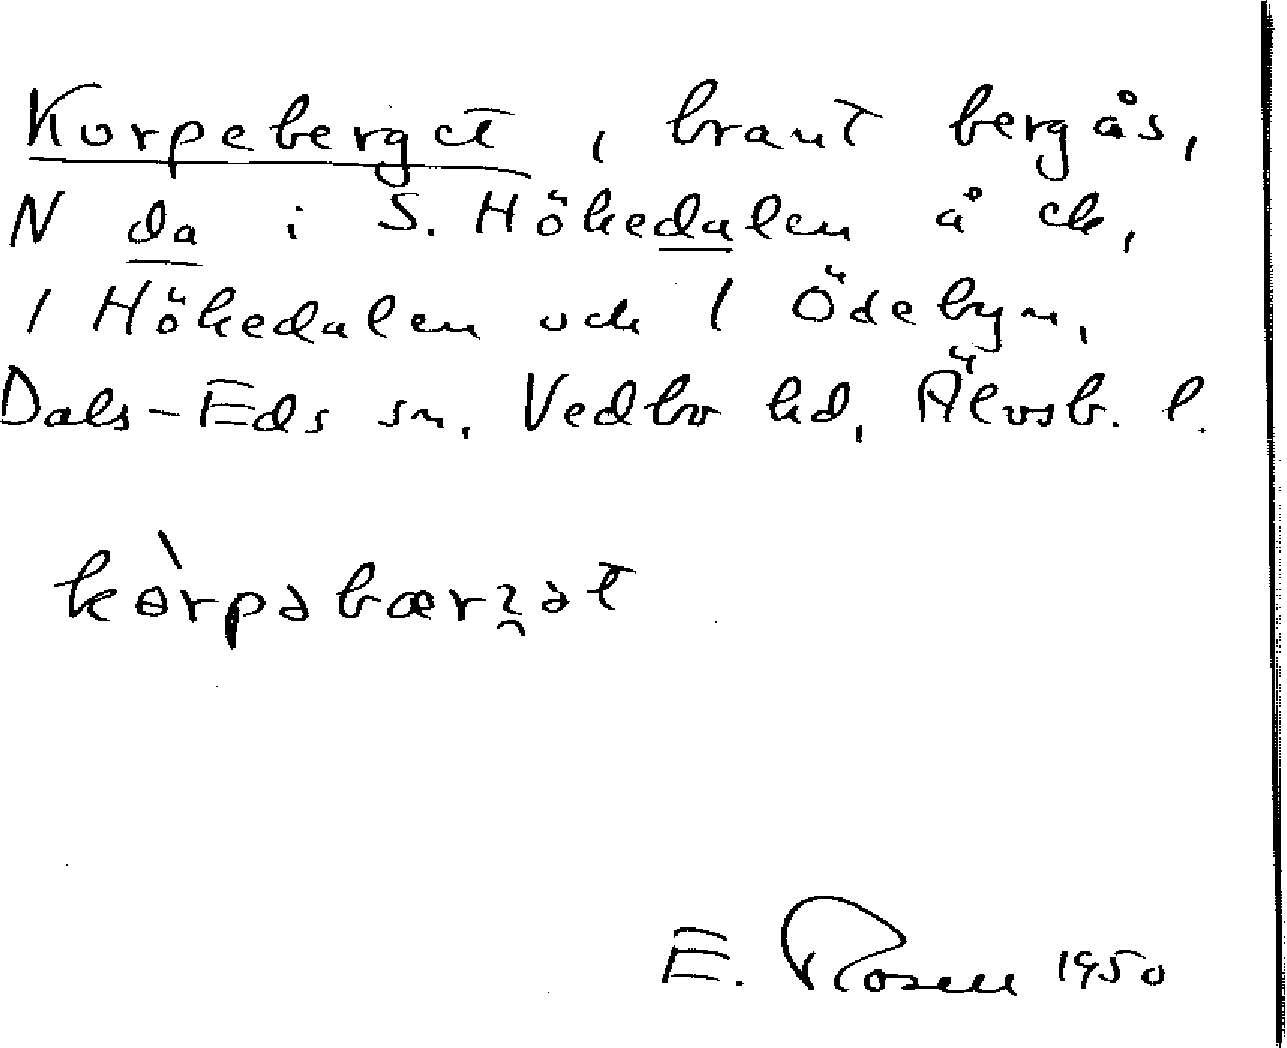 Korpeberget, brant bergås,
N da i S. Hökedalen å ek,
1 Hökedalen och 1 Ödebyn,
Dals-Eds sn, Vedbo hd, Älvsb. l.
E. Rosell 1950